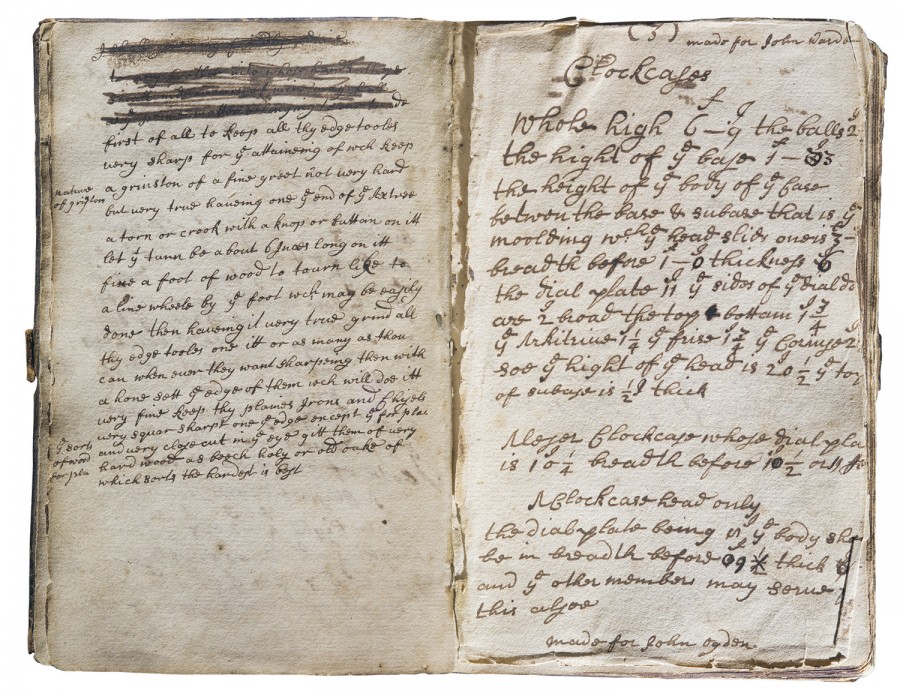 first of all to keep all thy edge tooles
very sharp for yͤ attaineing of wch keep
a grinston of a fine greet not very hard
nature
of grinston
but very true haveing one yͤ end of yͤ Axtree
a torn or crook with a knop or buttan on itt
let yͤ turn be about 6 Inces long on itt
fine a foot of wood to tourn like to
a line wheele by yͤ foot wch may be easily
done then haveing it very true grind all
thy edge tooles one itt or as many as thou
can when ever they want sharpeing then with
a hone sett yͤ edge of them wch will doe itt
very fine keep thy plaines Irons and Chysels
very squar sharpt one yͤ edge except yͤ for plai
yͤ sorts
of wood
for pla
and very close cut my eye gitt them of very
hard wood as beech holy or old oake of
which sorts the hardest is best
(5) made for John Warde
Clockcases
Whole high 6 – 9 the balls 2
the hight of yͤ base 1 –
the height of yͤ body of yͤ Case
betwen the base & subase that is yͤ
moolding wch yͤ head slids one is
breadth before 1 – 0 thickness 6
the dial plate 11 yͤ sides of yͤ dial do
are 2 broad the top bottam 1 3/4
yͤ Arkitrive 1 1/4 yͤ frise 1 3/4 yͤ Cornise 2
soe yͤ hight of yͤ head is 20 1/2 yͤ top
of subase is 1/2 thick
A leser Clockcase whose dial pla
is 10 1/4 breadth before 10 1/2 or 11
A Clockcase head only
the dial plate being yͤ body sh
be in breadth before thick
and yͤ other members may serve
this alsoe
made for John Ogden